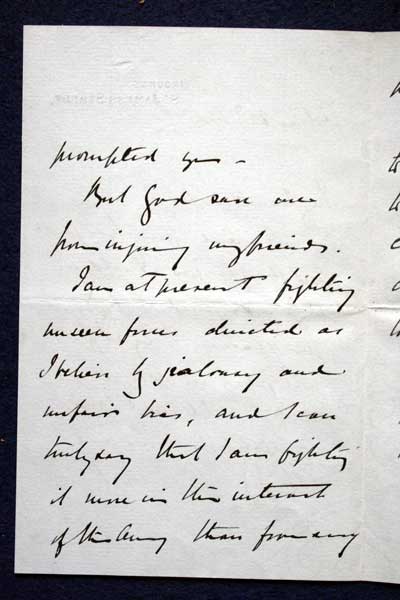 prompted you –
But God save me
from injuring my friends.
I am at present fighting
unseen forces directed as
I believe by jealousy and
unfair bias, and I can
truly say that I am fighting
it more in the interest
of the Army than from any